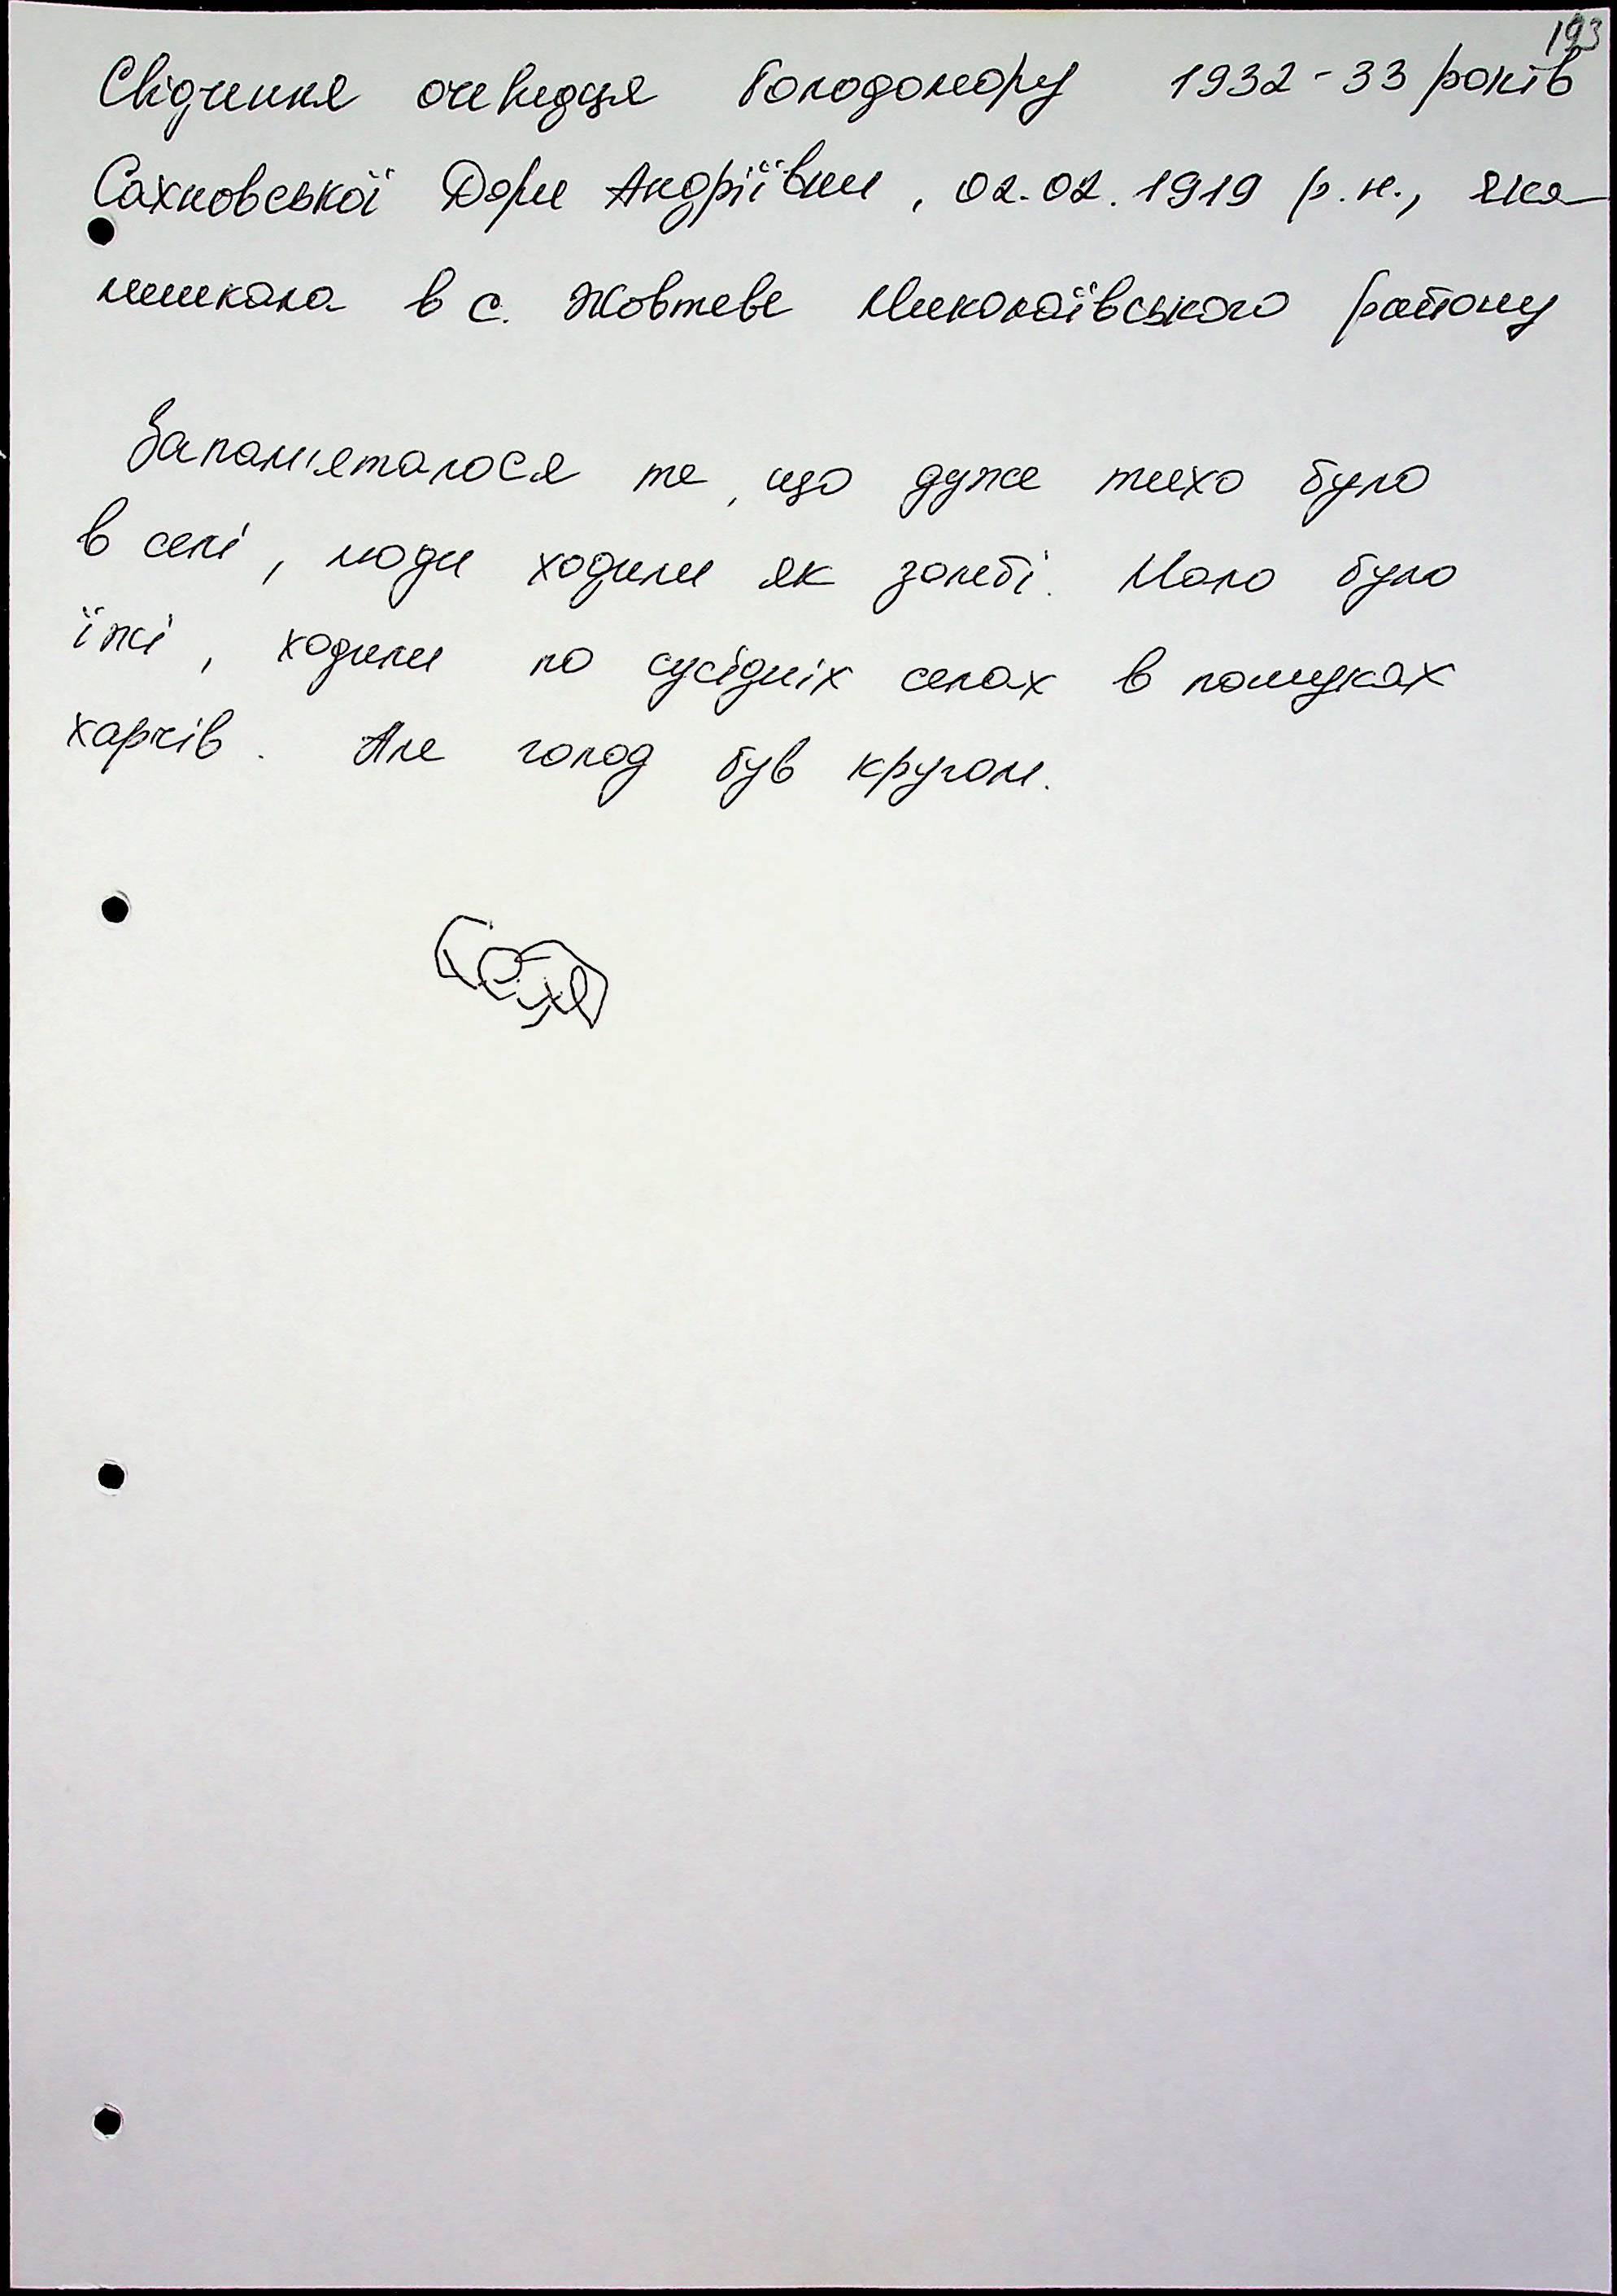 193
Свідчення очевидця Голодомору 1932-33 років
Сахновської Дори Андріївни, 02.02.1919 р.н., яка
мешкала в с. Жовтеве Миколаївського району
Запам'яталося те, що дуже тихо було
в селі, люди ходили як зомбі. Мало було
їжі, ходили по сусідніх селах в пошуках
харчів. Але голод був кругом.